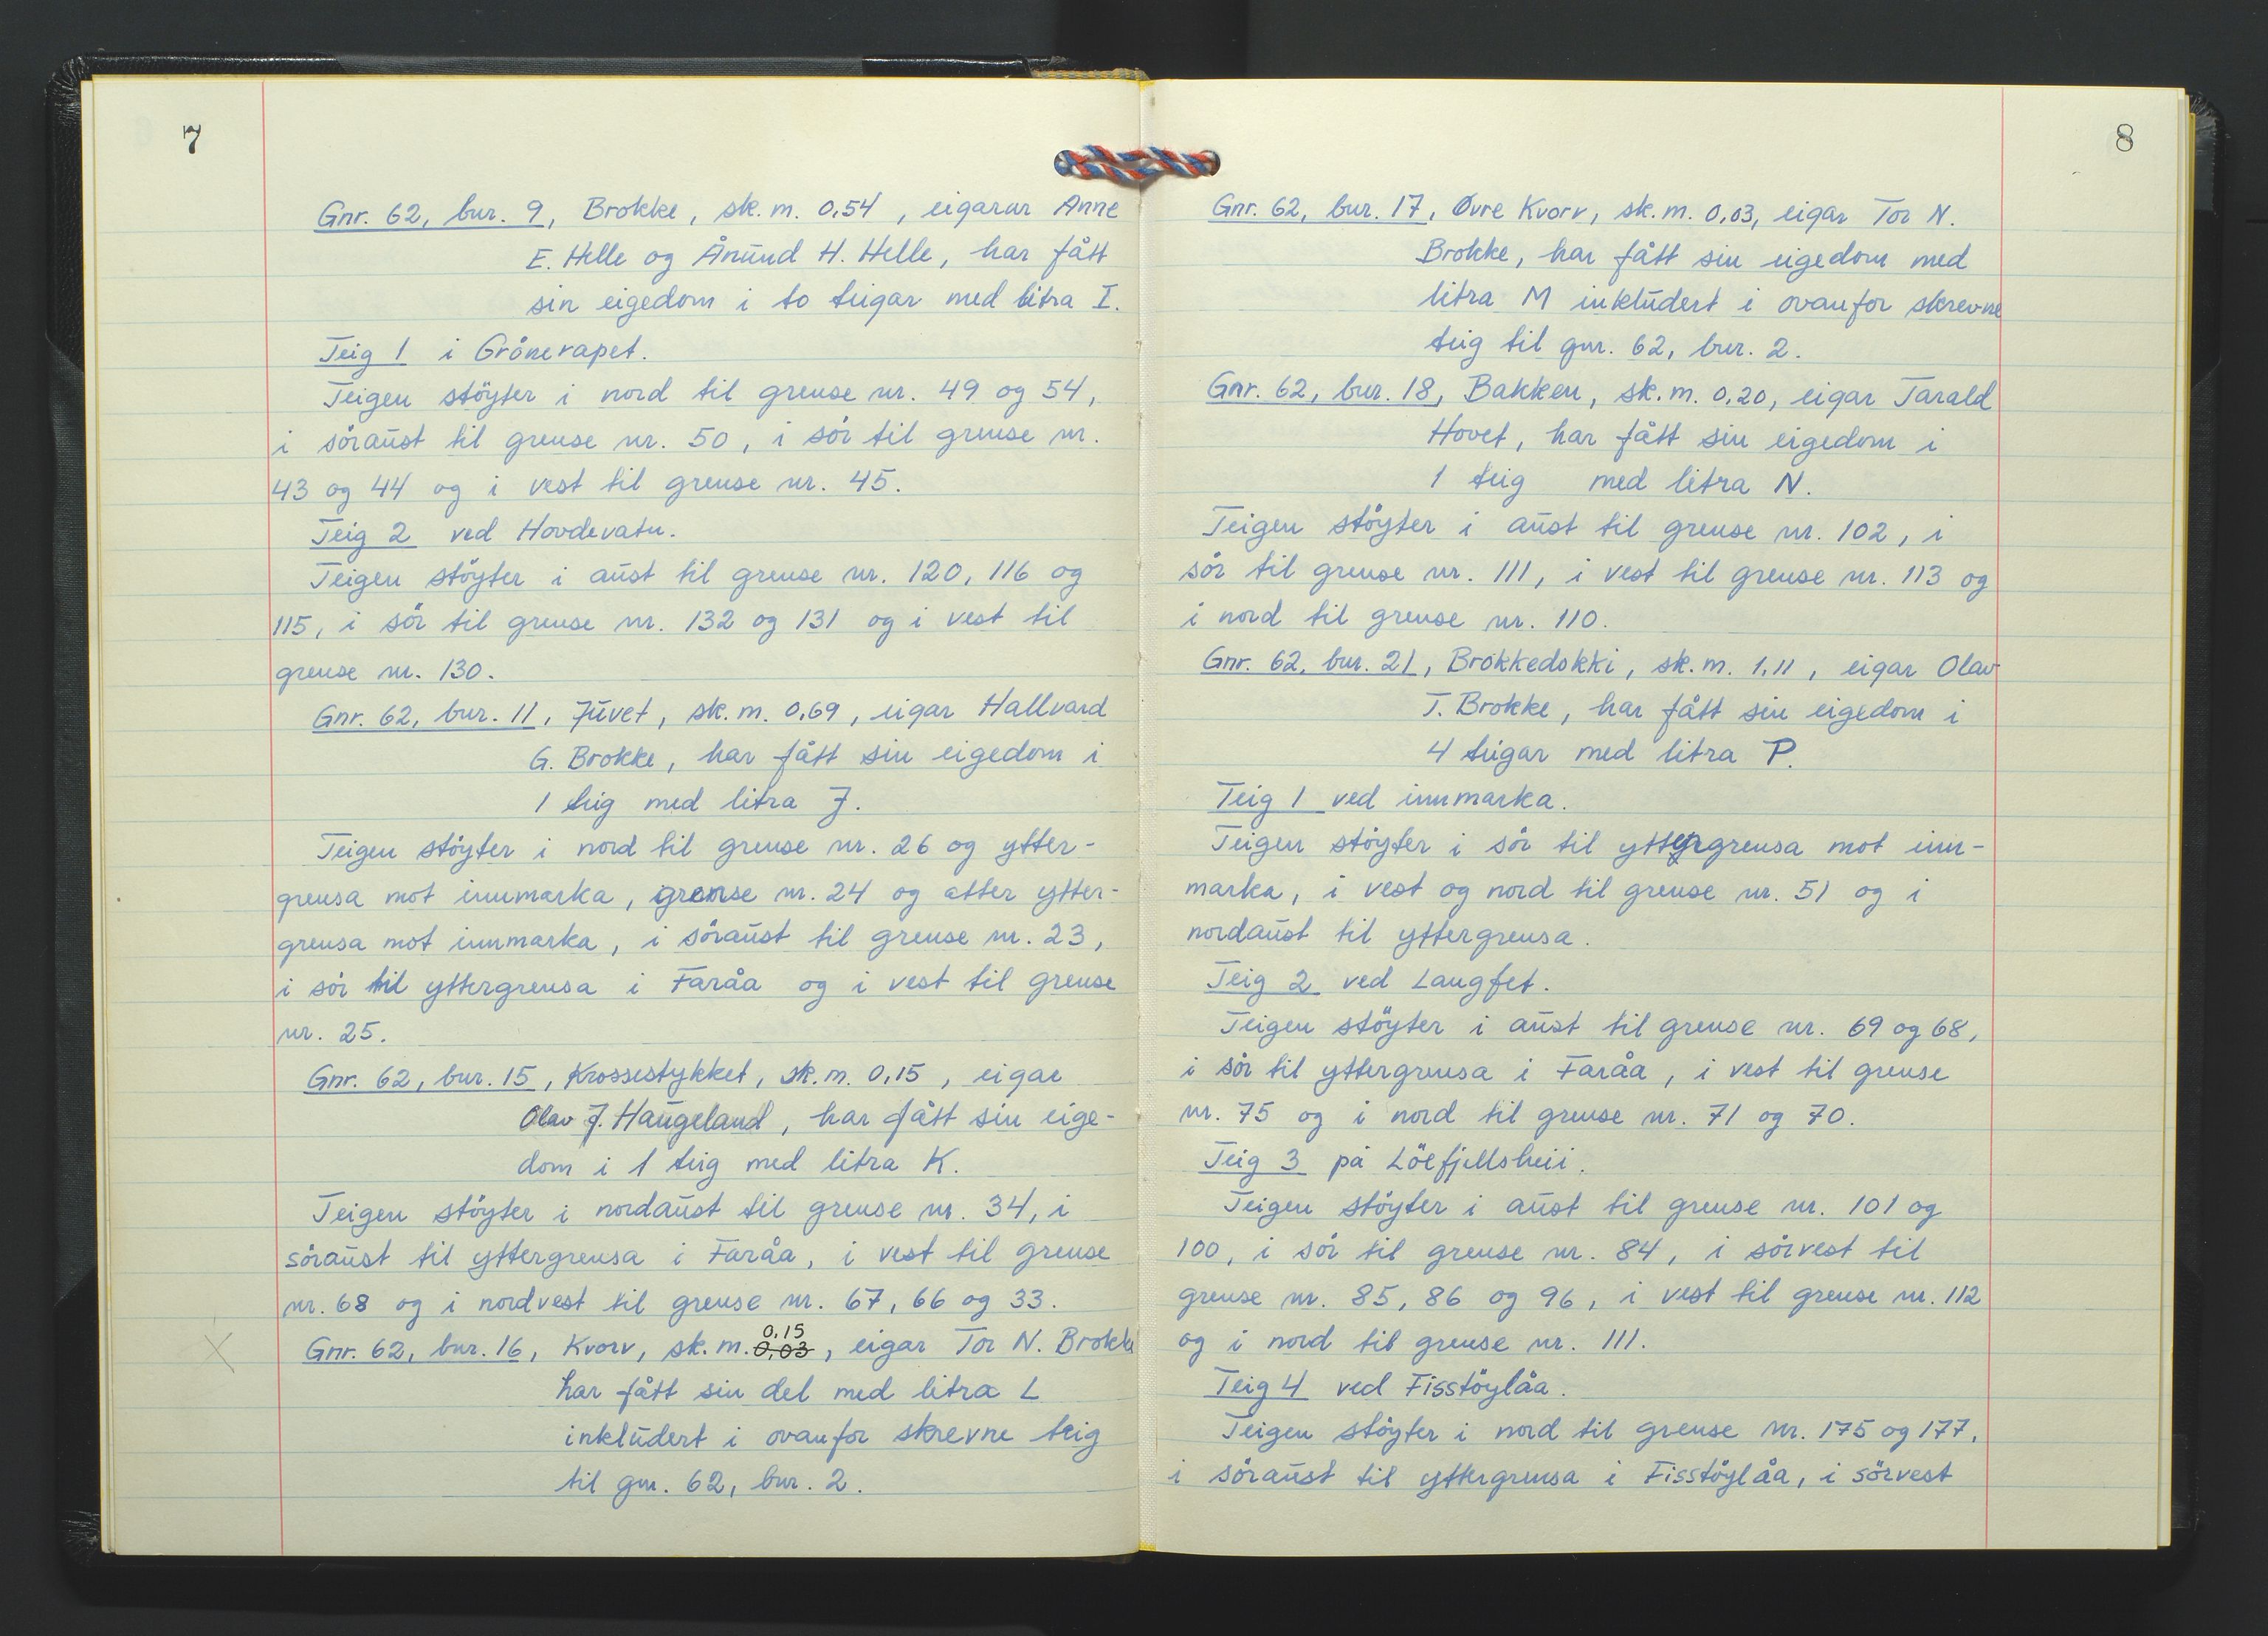 7
Gnr. 62, bnr. 9, Brokke, sk.m. 0,54, eigarar Anne
E. Helle og Ånund H. Helle, har fått
sin eigedom i to teigar med litra I.
Teig 1 i Grånerapet.
Teigen støyter i nord til grense nr. 49 og 54,
i søraust til grense nr. 50, i sør til grense nr.
43 og 44 og i vest til grense nr. 45.
Teig 2 ved Hovdevatn.
Teigen støyter i aust til grense nr. 120, 116 og
115, i sør til grense nr. 132 og 131 og i vest til
grense nr. 130.
Gnr. 62, bnr. 11, Juvet, sk.m. 0,69, eigar Hallvard
G. Brokke, har fått sin eigedom i
1 teig med litra J.
Teigen støyter i nord til grense nr. 26 og ytter-
grensa mot innmarka, grense nr. 24 og atter ytter-
grensa mot innmarka, i søraust til grense nr. 23,
i sør til yttergrensa i Faråa og i vest til grense
nr. 25.
Gnr. 62, bnr. 15, Krossestykket, sk.m. 0,15, eigar
Olav J. Haugeland, har fått sin eige-
dom i 1 teig med litra K.
Teigen støyter i nordaust til grense nr. 34, i
søraust til yttergrensa i Faråa, i vest til grense
nr. 68 og i nordvest til grense nr. 67, 66 og 33.
0,15
X Gnr. 62, bnr. 16, Kvorv, sk.m. 0,03, eigar Tor N. Brokke
har fått sin del med litra L
inkludert i ovanfor skrevne teig
til gnr. 62, bnr. 2.
8
Gnr. 62, bnr. 17, Øvre Kvorv, sk.m. 0,03, eigar Tor N.
Brokke, har fått sin eigedom med
litra M inkludert i ovanfor skrevne
teig til gnr. 62, bnr. 2.
Gnr. 62, bnr. 18, Bakken, sk.m. 0,20, eigar Tarald
Hovet, har fått sin eigedom i
1 teig med litra N.
Teigen støyter i aust til grense nr. 102, i
sør til grense nr. 111, i vest til grense nr. 113 og
i nord til grense nr. 110.
Gnr. 62, bnr. 21, Brokkedokki, sk.m. 1,11, eigar Olav
T. Brokke, har fått sin eigedom i
4 teigar med litra P.
Teig 1 ved innmarka.
Teigen støyter i sør til yttergrensa mot inn-
marka, i vest og nord til grense nr. 51 og i
nordaust til yttergrensa.
Teig 2 ved Langfet.
Teigen støyter i aust til grense nr. 69 og 68,
i sør til yttergrensa i Faråa, i vest til grense
nr. 75 og i nord til grense nr. 71 og 70.
Teig 3 på Löefjellsheii.
Teigen støyter i aust til grense nr. 101 og
100, i sør til grense nr. 84, i sørvest til
grense nr. 85, 86 og 96, i vest til grense nr. 112
og i nord til grense nr. 111.
Teig 4 ved Fisstøylåa.
Teigen støyter i nord til grense nr. 175 og 177,
i søraust til yttergrensa i Fisstøylåa, i sørvest